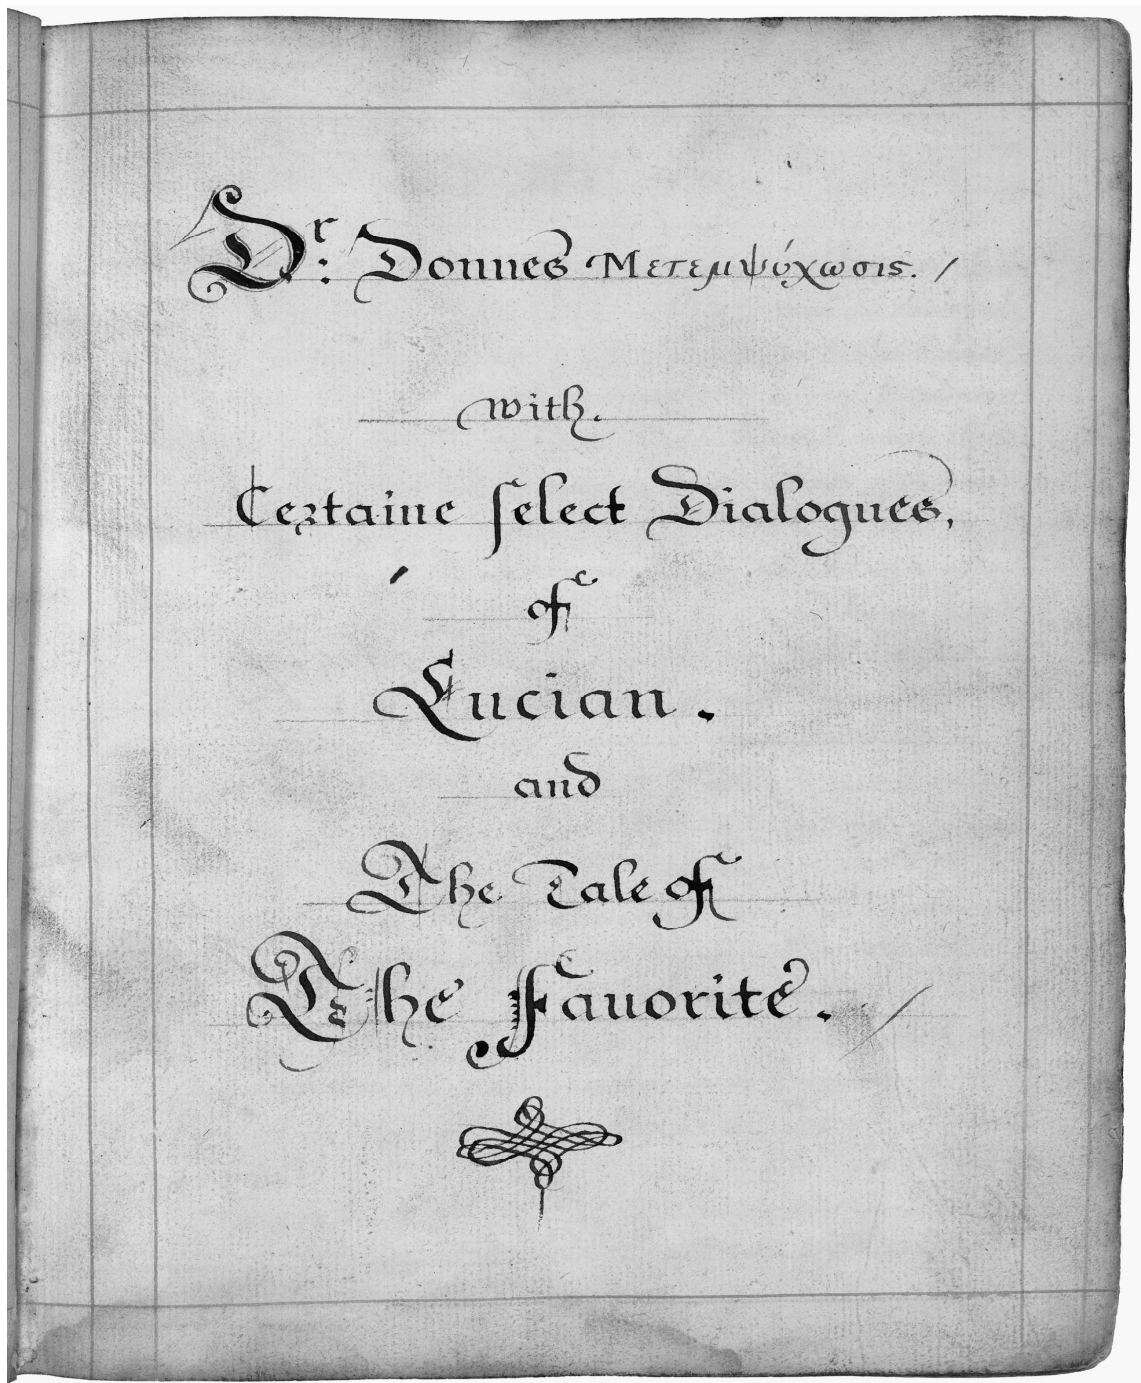 Dr: Donnes Μετεμψύχωσις. /
with.
Certaine ſelect Dialogues,
of
Lucian.
and
The Tale of
The Fauorite. /